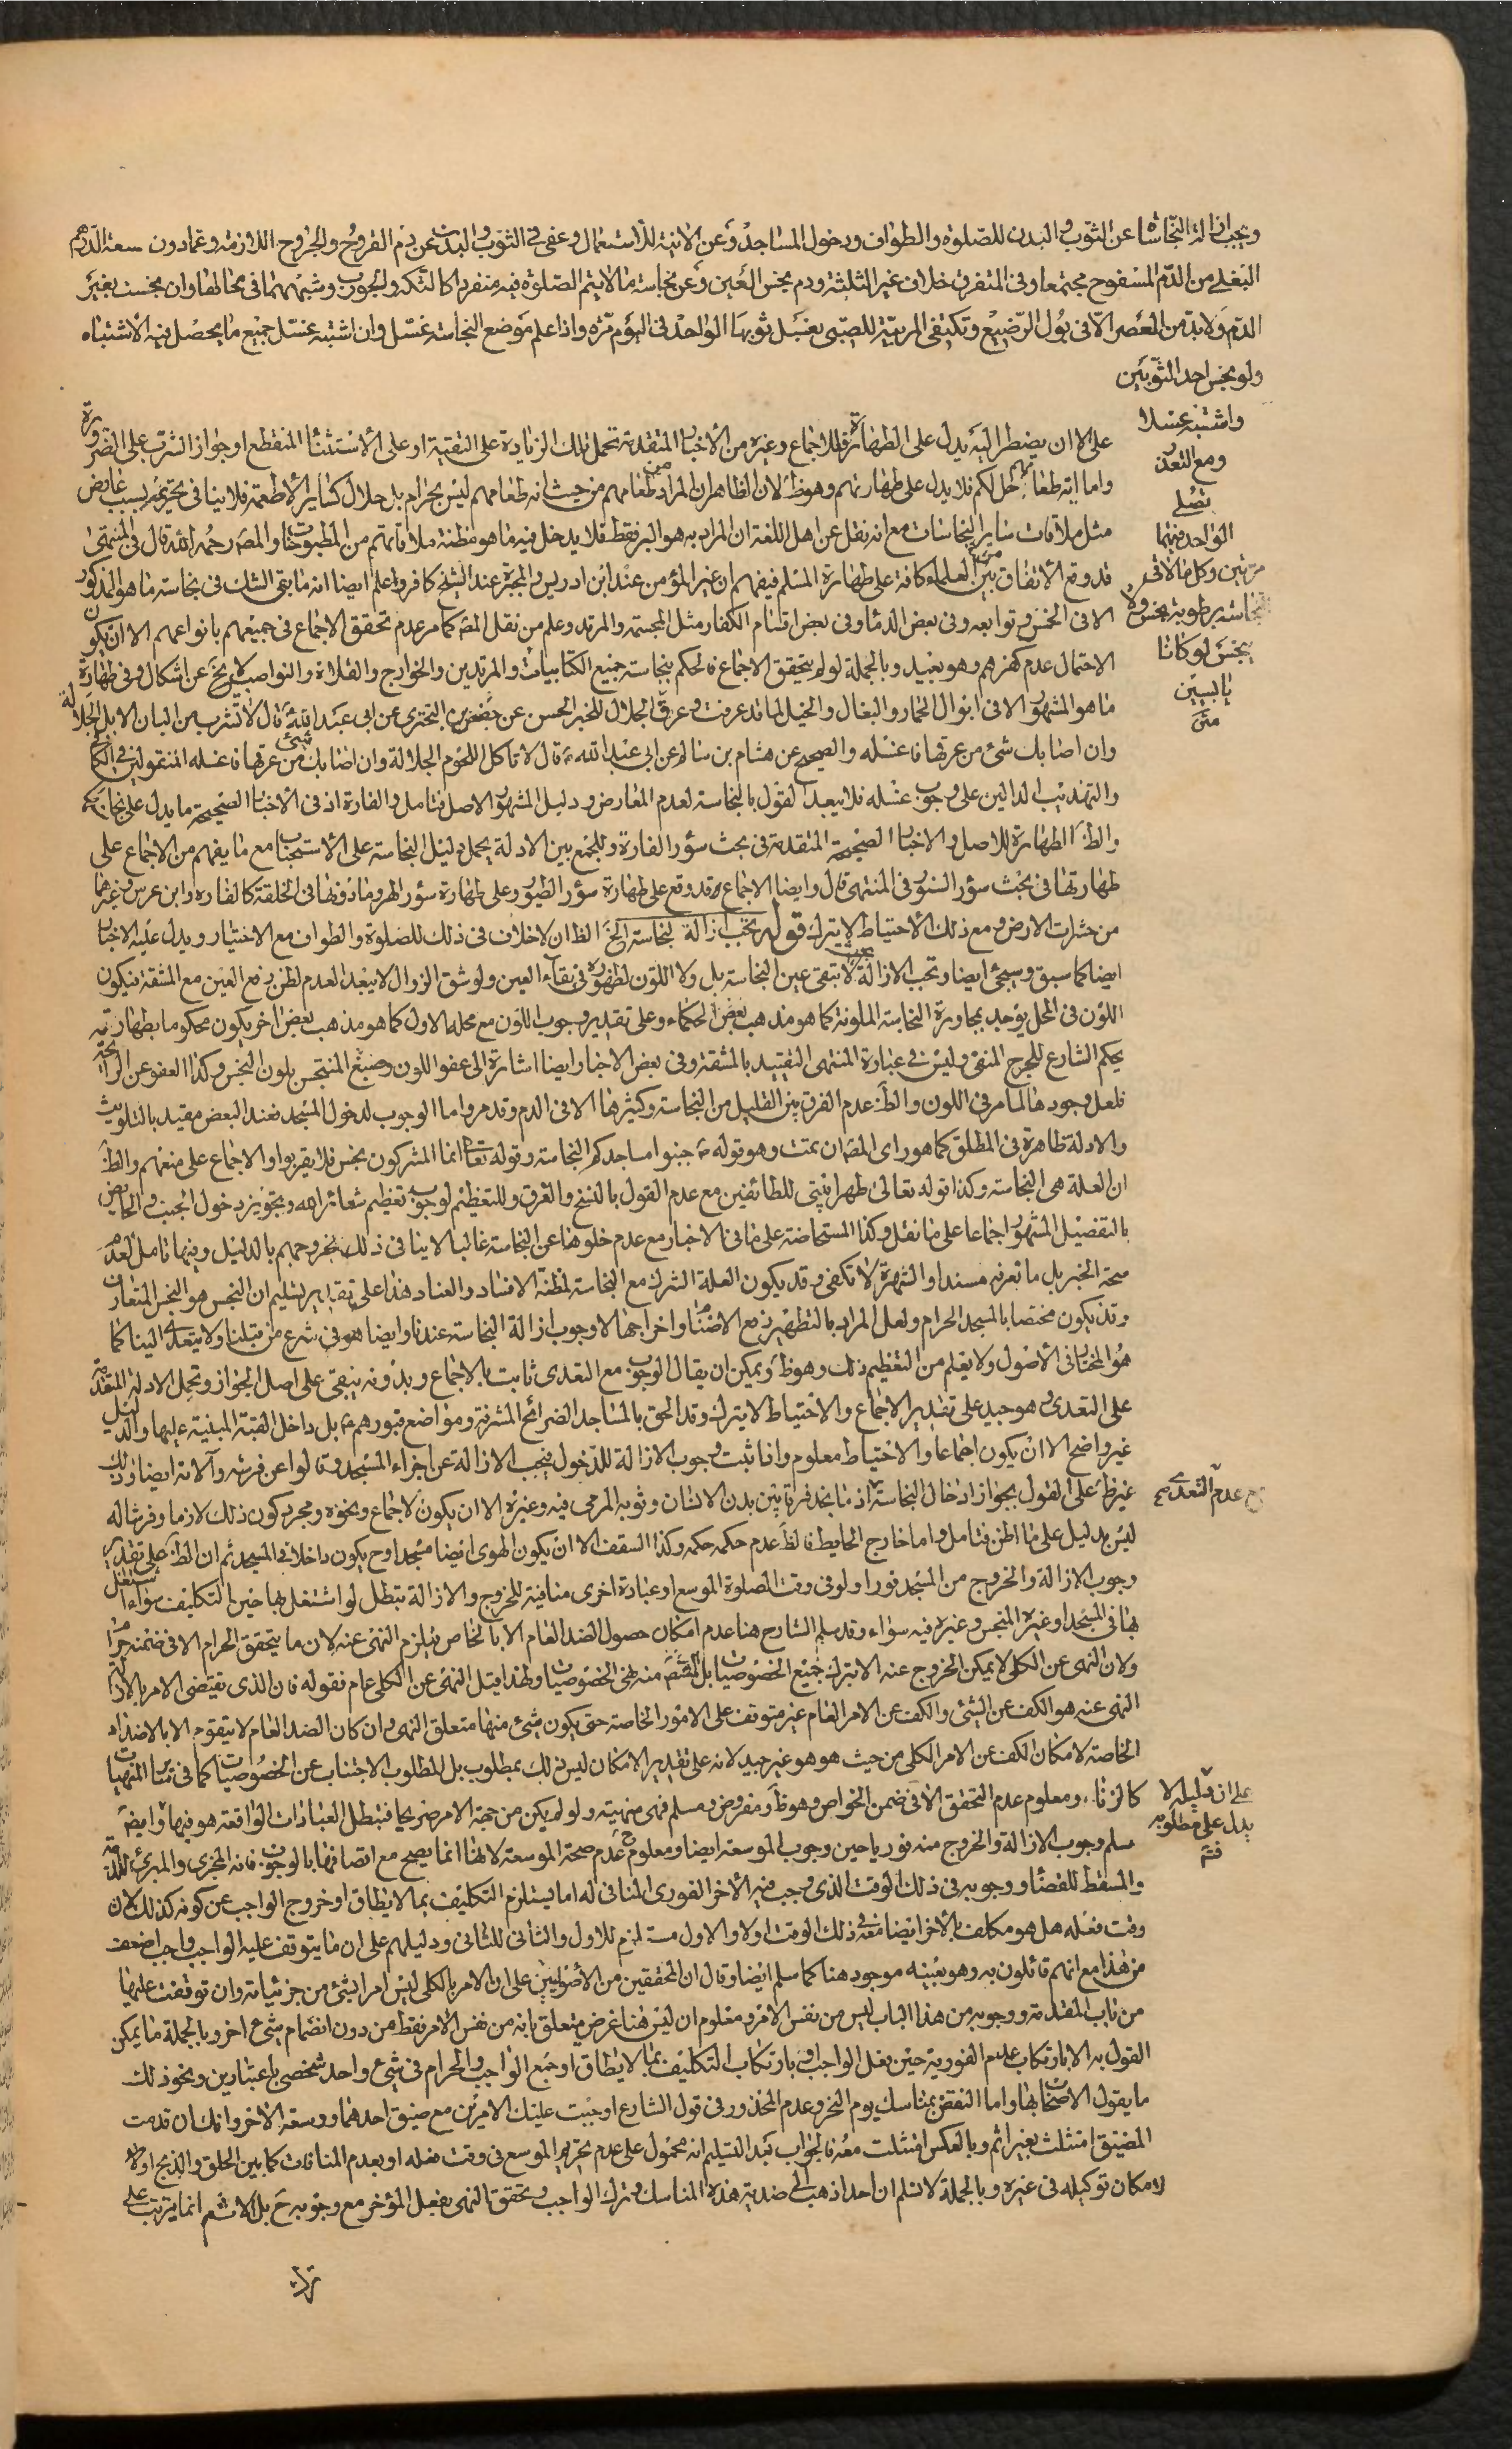 ويجب ازالة النجاسة عن الثوب والبدن للصلوة والطواف ودخول المساجد وعن الانية للاستعمال وعفى في الثوب والبدن عن دم القروح والجروح اللازمة وعمادون سعة الدرهم
البغلي من الدم المسفوح مجتمعا وفي المتفرق خلاف غير الثلثة ودم نجس العين وعن نجاسة ما لا يتم الصلوة فيه منفردا كالتكة والجورب وشبههما في محالها وان نجست بغير
الدم ولابد من العصر الا في بول الرضيع وتكتفى المربية للصبي بغسل ثوبها الواحد في اليوم مرة واذا علم موضع النجاسة غسل وان اشتبه غسل جميع ما يحصل فيه الاشتباه
ولو نجس احد الثوبين
واشتبه غسلا
ومع التعذر
تصلى
الواحد فيهما
مرتين وكل ما لاقى
النجاسة برطوبة نجس ولا
ينجس لو كانا
يابسين
متن
على الا ان يضطر اليه يدل على الطهارة فللاجماع وغيره من الاخبار المتقدمة تحمل تلك الزيادة على التقية او على الاستثناء المنقطع او جواز الشرب على الضرورة
واما اية طعامهم حل لكم فلا يدل على طهارتهم وهو ظ لان الظاهر ان المراد من طعامهم من حيث انه طعامهم ليس بحرام بل حلال كساير الاطعمة فلا ينافى تحريمه بسبب عارض
مثل ملاقات ساير النجاسات مع انه نقل عن اهل اللغة ان المراد به هو البر فقط فلا يدخل فيه ما هو مظنة ملاقاتهم من المطبوخات والمصـ رحمه الله قال في المنتهى
قد وقع الاتفاق بين العلماء كافة على طهارة المسلم فيفهم ان غير المؤمن عند ابن ادريس والمجبرة عند الشيخ كافر واعلم ايضا انه ما بقى الشك في نجاسة ما هو المذكور
الا في الخمس وتوابعه وفي بعض الدماء وفي بعض اقسام الكفار مثل المجسمة والمرتد وعلم من نقل المصـ كما مر عدم تحقق الاجماع في جميعهم بانواعهم الا ان يكون
الاحتمال عدم كفرهم وهو بعيد وبالجملة لو لم يتحقق الاجماع فالحكم بنجاسة جميع الكتابيات والمرتدين والخوارج والغلاة والنواصب لا يخ عن اشكال وفي طهارة
ما هو المشهور الا في ابوال الحمار والبغال والخيل لما قد عرفت وعرق الجلال للخبر الحسن عن حفص بن البختري عن ابي عبد الله ع قال لا تشرب من البان الابل الجلالة
وان اصابك شئ من عرقها فاغسله والصحيح عن هشام بن سالم عن ابي عبد الله ع قال لا تاكل اللحوم الجلالة وان اصابك من عرقها شئ فاغسله المنقولين في الكا
والتهذيب الدالين على وجوب غسله فلا يبعد القول بالنجاسة لعدم المعارض ودليل المشهور الاصل فتامل والفارة اذ في الاخبار الصحيحة ما يدل على نجاستها
والظ الطهارة للاصل والاخبار الصحيحة المتقدمة في بحث سؤر الفارة وللجمع بين الادلة يحمل دليل النجاسة على الاستحباب مع ما يفهم من الاجماع على
طهارتها في بحث سؤر السنور في المنتهى قال وايضا الاجماع قد وقع على طهارة سؤر الطيور وعلى طهارة سؤر الهر وما دونها في الخلقة كالفاره وابن عرس وغيرهما
من حشرات الارض ومع ذلك الاحتياط لا يترك قوله يجب ازالة النجاسة الخ الظ ان لا خلاف في ذلك للصلوة والطواف مع الاختيار ويدل عليه الاخبار
ايضا كما سبق وسيجئ ايضا وتجب الازالة بحيث لا تبقى عين النجاسة بل ولا اللون لظهوره في بقاء العين ولو شق الزوال لا يبعد العدم لظن رفع العين مع المشقة فيكون
اللون في المحل يؤخذ بمجاورة النجاسة الملونة كما هو مذهب بعض الحكماء وعلى تقدير وجوب اللون مع محله الاول كما هو مذهب بعض اخر يكون محكوما بطهارته
بحكم الشارع للحرج المنفى وليس في عبارة المنتهى التقييد بالمشقة وفي بعض الاخبار ايضا اشارة الى عفو اللون وصبغ المتنجس بلون النجس وكذا العفو عن الرايحة
فلعل وجودها لما مر في اللون والظ عدم الفرق بين القليل من النجاسة وكثيرها الا في الدم وقد مر واما الوجوب لدخول المسجد فعند البعض مقيد بالتلويث
والادلة ظاهرة في المطلق كما هو راى المصـ ان تمت وهو قوله ص جنبوا مساجدكم النجاسة وقوله تعا انما المشركون نجس فلا يقربوا والاجماع على منعهم والظ
ان العلة هي النجاسة وكذا قوله تعالى طهرا بيتي للطائفين مع عدم القول بالنسخ والفرق وللتعظيم لوجوب تعظيم شعائر الله وتجويز دخول الجنب والحايض
بالتفصيل المشهور اجماعا على ما نقل وكذا المستحاضة على ما في الاخبار مع عدم خلوهما عن النجاسة غالبا لا ينافى ذلك بخروجهم بالدليل وفيها تامل لعدم
صحة الخبر بل ما نعرفه مسندا والشهرة لا تكفى وقد يكون العلة الشرك مع النجاسة لمظنة الافساد والعناد هذا على تقدير تسليم ان النجس هو النجس المتعارف
وقد يكون مختصا بالمسجد الحرام ولعل المراد بالتطهير رفع الاصنام واخراجها لا وجوب ازالة النجاسة عندنا وايضا هو في شرع من قبلنا ولا يتعداه الينا كما
هو المختار في الاصول ولا يعلم من التعظيم ذلك وهو ظ ويمكن ان يقال الوجوب مع التعدى ثابت بالاجماع وبدونه يبقى على اصل الجواز وتحمل الادلة المتقدمة
على التعدى وهو جيد على تقدير الاجماع والاحتياط لا يترك وقد الحق بالمساجد الضرائح المشرفة ومواضع قبورهم ع بل داخل القبة المبنية عليها والدليل
غير واضح الا ان يكون اجماعا والاحتياط معلوم واذا ثبت وجوب الازالة للدخول فيجب الازالة عن اجزاء المسجد وقالوا عن فرشه وآلاته ايضا وذلك
غير ظ على القول بجواز ادخال النجاسة اذ ما نجد فرقا بين بدن الانسان وثوبه المرمى فيه وغيره الا ان يكون لاجماع ونحوه ومجرد كون ذلك لازما وفرشا له
ع عدم التعدى صح
ليس بدليل على ما اظن فتامل واما خارج الحايط فالظ عدم حكمه حكمه وكذا السقف الا ان يكون الهوى ايضا مسجدا وح يكون داخلا في المسجد ثم ان الظ على تقدير
وجوب الازالة والخروج من المسجد فورا ولو في وقت الصلوة الموسع او عبادة اخرى منافية للخروج والازالة تبطل لو اشتغل بها حين التكليف سواء اشتغل
بها في المسجد او غيره المنجس وغيره فيه سواء وقد سلم الشارح هنا عدم امكان حصول الضد العام الا بالخاص فيلزم النهى عنه لان ما يتحقق الحرام الا في ضمنه حراما
ولان النهى عن الكلى لا يمكن الخروج عنه الا بترك جميع الخصوصيات بل المقصـ منه نهى الخصوصيات ولهذا قيل النهى عن الكلى عام فقوله فان الذى يقتضى الامر بالازالة
النهى عنه هو الكف عن الشئ والكف عن الامر العام غير متوقف على الامور الخاصة حتى يكون شئ منها متعلق النهى وان كان الضد العام لا يتقوم الا بالاضداد
الخاصة لامكان الكف عن الامر الكلى من حيث هو هو غير جيد لانه على تقدير الامكان ليس ذلك بمطلوب بل المطلوب الاجتناب عن الخصوصيات كما في ساير المنهيات
كالزنا ومعلوم عدم التحقق الا في ضمن الخواص وهو ظ ومفروض ومسلم فهى منهية ولو لم يكن من جهة الامر صريحا فتبطل العبادات الواقعة هو فيها وايضا
على ان دليله لا
يدل على مطلوبه
فتم
مسلم وجوب الازالة والخروج منه فوريا حين وجوب الموسعة ايضا ومعلوم ح عدم صحة الموسعة لانها انما يصح مع اتصافها بالوجوب فانه المجزى والمبرئ للذمة
والمسقط للقضاء ووجوبه في ذلك الوقت الذى وجب فيه الاخر الفورى المنافى له اما يستلزم التكليف بما لا يطاق او خروج الواجب عن كونه كذلك لان
وقت فعله هل هو مكلف بالاخر ايضا معه في ذلك الوقت اولا والاول مستلزم للاول والثاني للثاني ودليلهم على ان ما يتوقف عليه الواجب واجب اضعف
من هذا مع انهم قائلون به وهو بعينه موجود هنا كما سلم ايضا وقال ان المحققين من الاصوليين على ان الامر بالكلى ليس امرا بشئ من جزئياته وان توقفت عليها
من باب المقدمة ووجوبه من هذا الباب ليس من نفس الامر ومعلوم ان ليس هنا غرض متعلق بانه من نفس الامر فقط من دون انضمام شئ اخر وبالجملة ما يمكن
القول به الا بارتكاب عدم الفورية حين فعل الواجب او بارتكاب التكليف بما لا يطاق او جمع الواجب والحرام في شئ واحد شخصى باعتبارين ونحو ذلك
ما يقول الاصحاب بها واما النقض بمناسك يوم النحر وعدم المحذور في قول الشارع اوجبت عليك الامرين مع ضيق احدهما ووسعة الاخر وانك ان قدمت
المضيق امتثلت بغير اثم وبالعكس امتثلت معه فالجواب بعد التسليم انه محمول على عدم تحريم الموسع في وقت فعله او بعدم المنافات كما بين الحلق والذبح اولا
لامكان توكيله في غيره وبالجملة لا نسلم ان احدا ذهب الى ضدية هذه المناسك وترك الواجب وتحقق النهى بفعل المؤخر مع وجوبه ح بل الاثم انما يترتب على